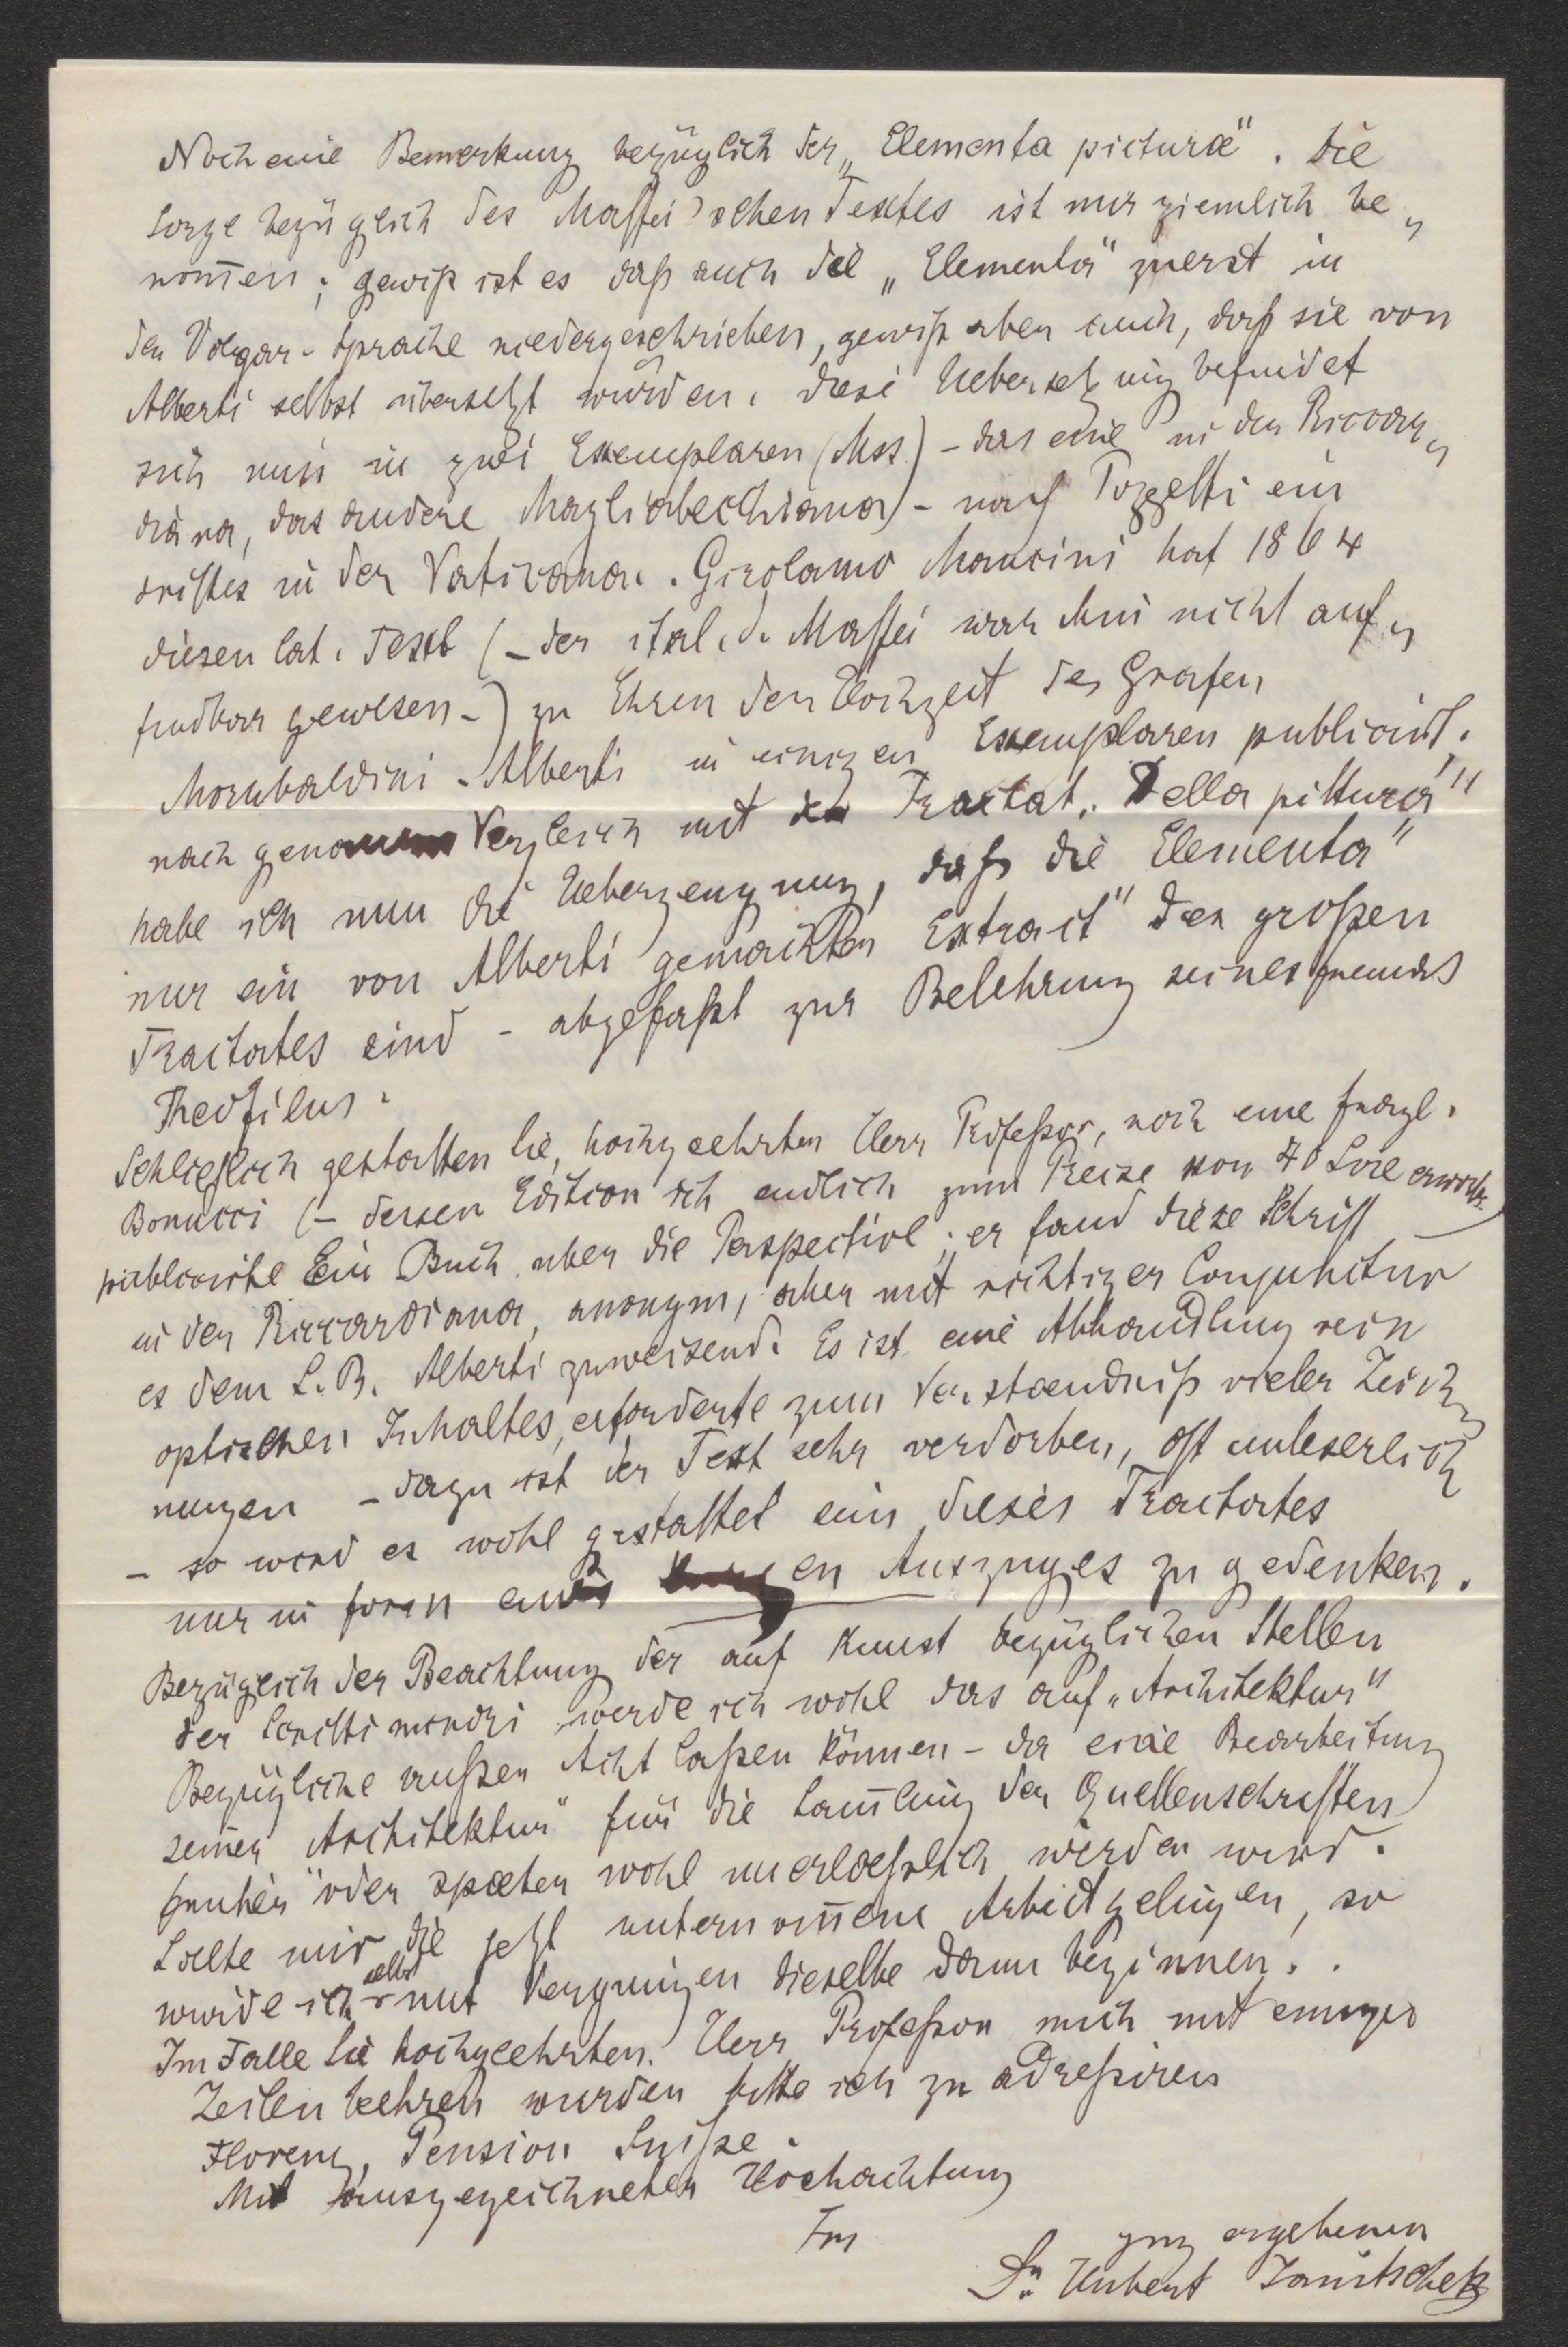 Noch eine Bemerkung bezüglich der „Elementa picturæ". Die
Sorge bezüglich des Maffei'schen Textes ist mir ziemlich be„
nom̅en; gewiß ist es daß auch die „Elementa" zuerst in
der Volgar-Sprache niedergeschrieben, gewiß aber auch, daß sie von
Alberti selbst übersetzt wurden. Diese Uebersetzung befindet
sich nun in zwei Exemplaren (Mss.) – das eine in der Riccar„
diana, das andere Magliabechiana) – nach Pozzetti ein
drittes in der Vaticana. Girolamo Mancini hat 1864
diesen lat. Text (– der ital. d. Maffei war ihm nicht auf„
findbar gewesen –) zu Ehren der Hochzeit des Grafen
Mornbaldini-Alberti in einigen Exemplaren publicirt.
nach genauem Vergleich mit dem Tractat „Della pittura"
habe ich nun die Ueberzeugung, daß die Elementa"
nur ein von Alberti gemachter Extract" des großen
Tractates sind – abgefaßt zur Belehrung seines Freundes
Theofilus.
Schließlich gestatten Sie, hochgeehrter Herr Professor, noch eine Frage.
Bonucci (– dessen Edition ich endlich zum Preise von 40 Lire erwarb)
publicirte Ein Buch über die Perspective; er fand diese Schrift
in der Riccardiana, anonym, aber mit richtiger Conjunctur
es dem L. B. Alberti zuweisend. Es ist eine Abhandlung rein
optischen Inhaltes, erforderte zum Verstaendniß vieler Zeich„
nungen – dazu ist der Text sehr verdorben, oft unleserlich
– so wird es wohl gestattet sein dieses Tractates
nur in Form eines kurzen Auszuges zu gedenken.
Bezüglich der Beachtung der auf Kunst bezüglichen Stellen
der Scritti morali werde ich wohl das auf „Architektur"
Bezügliche außer Acht laßen können – da eine Bearbeitung
seiner Architektur" für die Sam̅lung der Quellenschriften
früher oder spaeter wohl unerlaeßlich werden wird.
Sollte mir die jetzt unternom̅ene Arbeit gelingen, so
würde ich selbst mit Vergnügen dieselbe dann beginnen.
Im Falle Sie hochgeehrter Herr Professor mich mit einigen
Zeilen beehren würden bitte ich zu adreßiren
Florenz, Pension Suiße.
Mit ausgezeichneter Hochachtung
Ihr
ganz ergebener
Dr. Hubert Janitschek